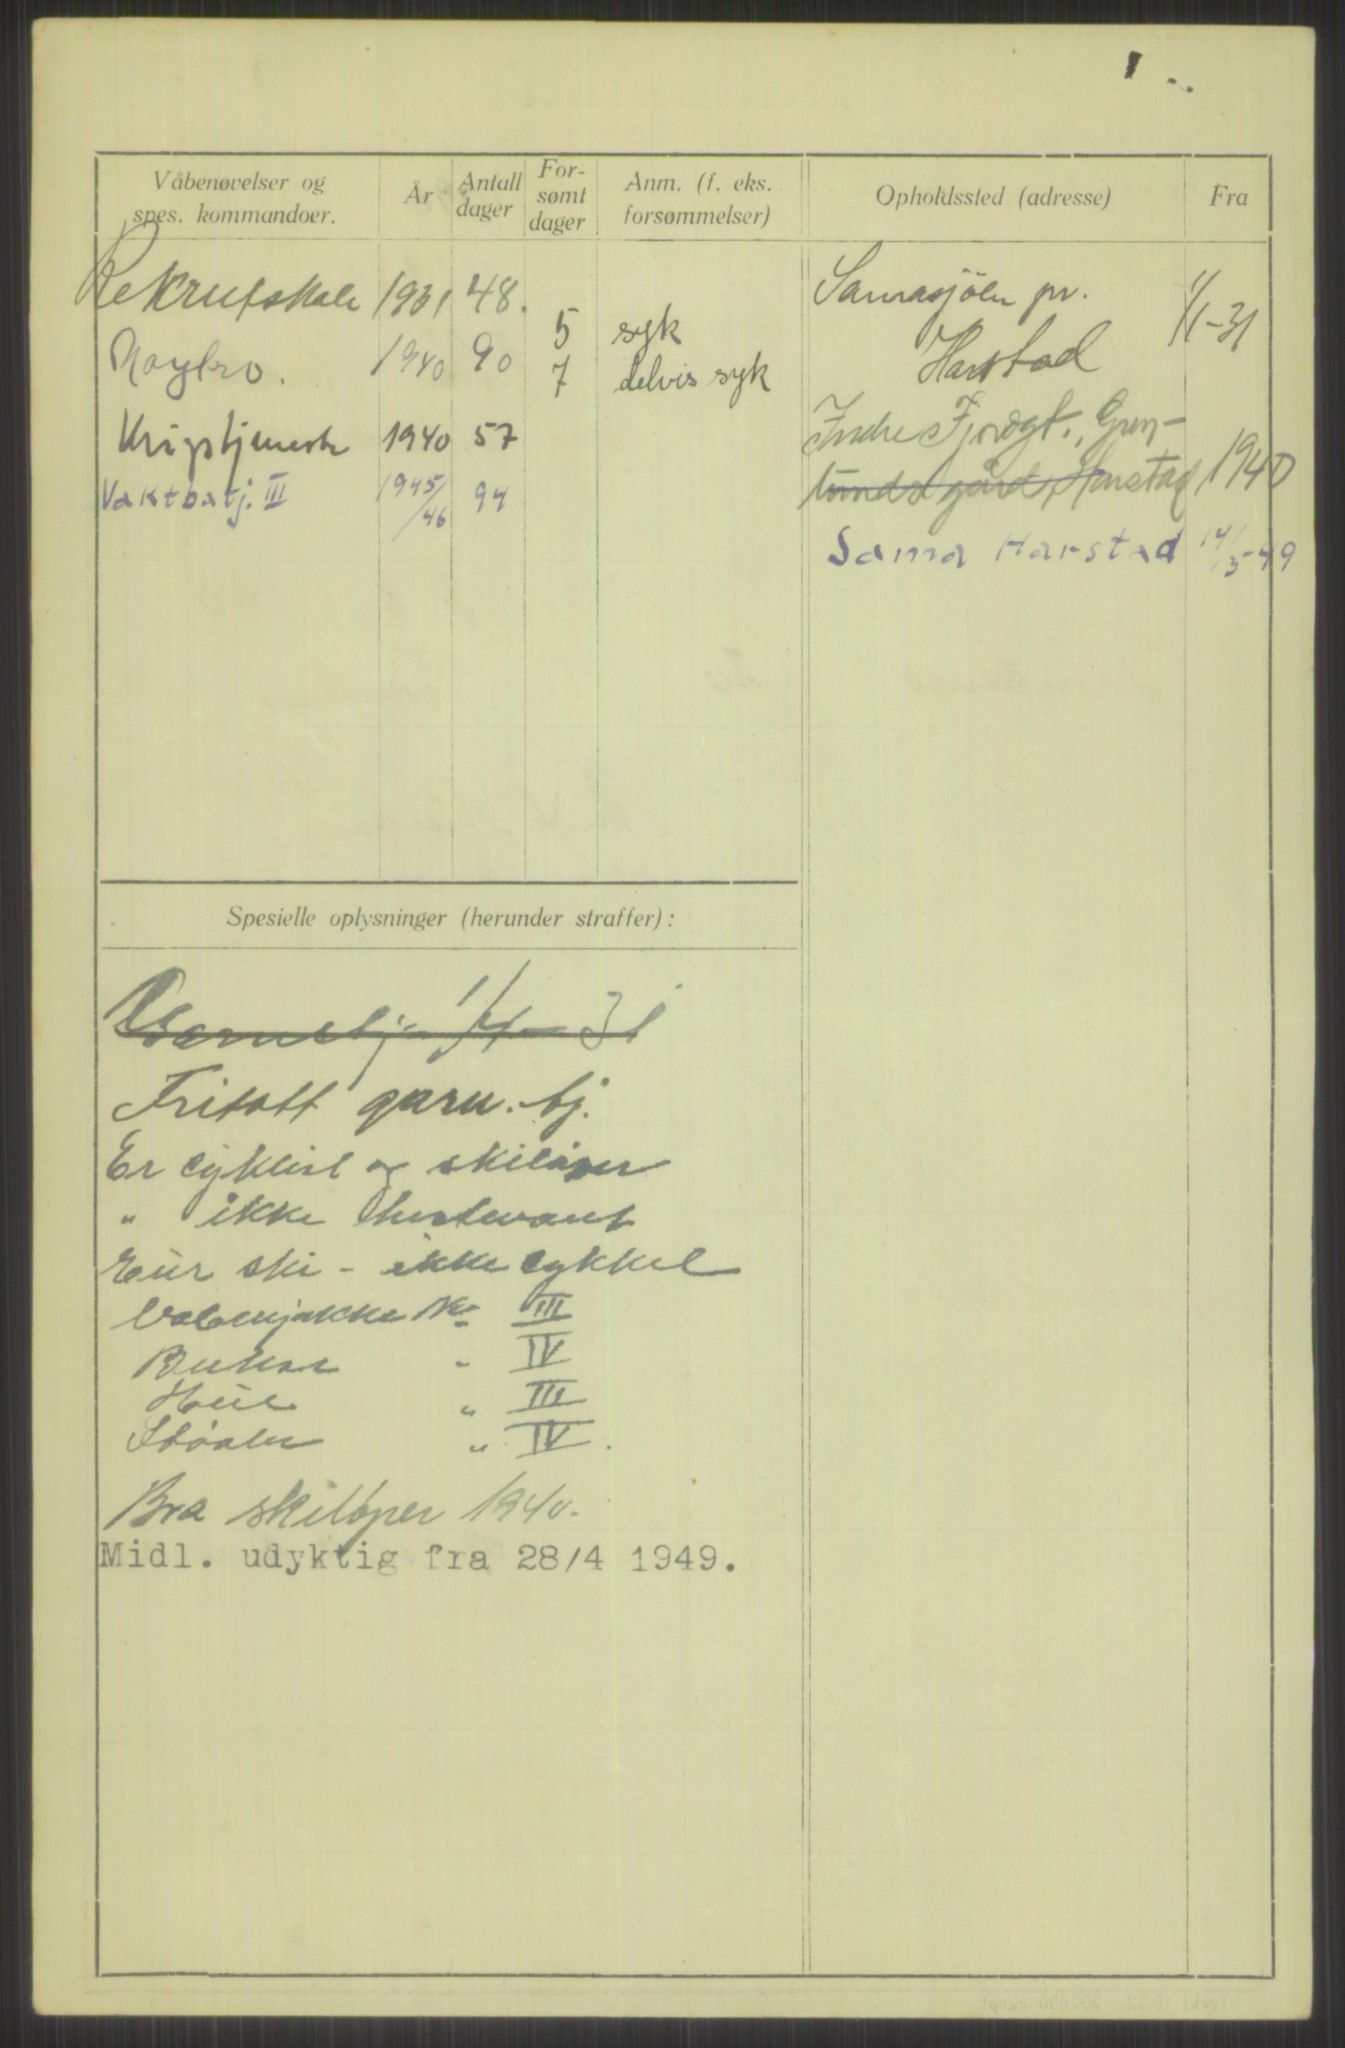 Våbenøvelser og spes. kommandoer. År Antall dager For-sømt dager Anm. (f. eks. forsømmelser) Opholdssted (adresse) Fra
Rekrutskole 1931 48.
5 syk
Nøytro. 1940 90
7 delvis syk
Krigstjeneste 1940 57
Vaktbatj. III 1945/46 94
Samasjöen pr. Harstad 1/1-31
Indre Fjordgt., Grøn-
lunds gård, Harstad 1940
Sama Harstad 14/3-49
Spesielle oplysninger (herunder straffer):
Garnstj. 1/4-31
Fritatt garn. tj.
Er cyklist og skiløper
" ikke hestevant
Eier ski - ikke cykkel
Vabenjakke Nr III
Bukse - IV
Hue " III
Støvler " IV.
Bra skiløper 1940.
Midl. udyktig fra 28/4 1949.